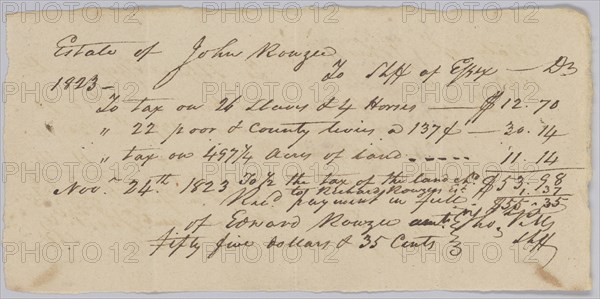 Estate of John Rowzee
To Shff of Essex — Dr
1823 —
To tax on 26 Slaves & 4 Horses — $ 12.70
" 22 poor & County levies a 137¢ — 30.14
" tax on 497¼ Acres of land ----- 11.14
$ 53.98
Novr. 24th. 1823 To ½ the tax of the land chd
to Richard Rowzees est. 1.37
Recd payment in full $ 55.35
of Edward Rowzee
fifty five dollars & 35 Cents Shff